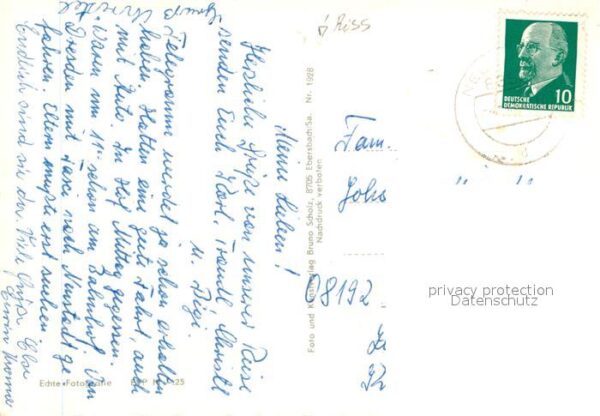 Meine Lieben!
Herzliche Grüße von unserer Reise
senden Euch Karl, Traudl, Christl
u. Gigi.
Telegramm werdet ja schon erhalten
haben. Hatten eine gute Fahrt, auch
mit Auto. In Hof Mittag gegessen.
Waren um 11⁰ schon am Bahnhof. Von
Dresden mit Taxi nach Neustadt ge
fahren. Eltern mußte erst suchen
Endlich sind sie da. Viele Grüße
Riss
DEUTSCHE
DEMOKRATISCHE REPUBLIK
10
Fam.
08192
Foto und Kunstverlag Bruno Scholz, 8705 Ebersbach/Sa. Nr. 1928
Nachdruck verboten
Echte Fotografie
privacy protection
Datenschutz